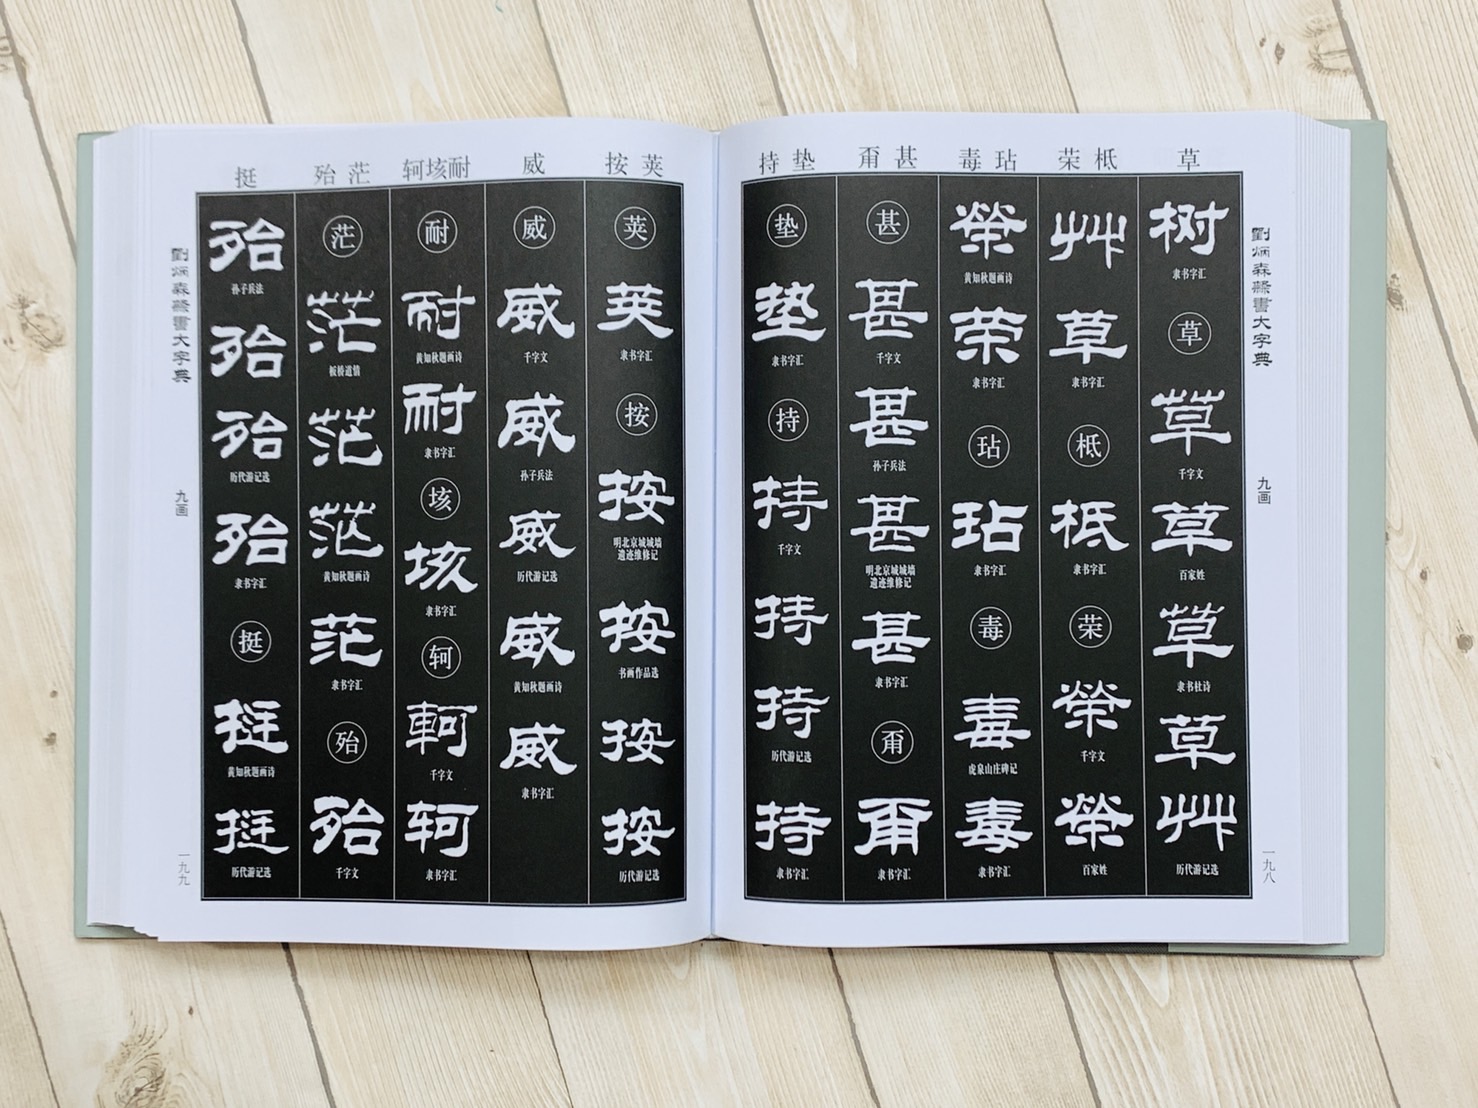 劉炳森隸書大字典
九画
一九八
草
柢 荣
玷 毒
甚
垫 持
树
隶书字汇
草
草
千字文
草
百家姓
草
隶书杜诗
草
艸
历代游记选
艸
草
隶书字汇
柢
柢
隶书字汇
荣
榮
千字文
榮
百家姓
榮
黄知秋题画诗
荣
隶书字汇
玷
玷
隶书字汇
毒
毒
虎泉山庄碑记
毒
隶书字汇
甚
甚
千字文
甚
孙子兵法
甚
明北京城城墙
遗迹维修记
甚
隶书字汇
隶书字汇
垫
垫
隶书字汇
持
持
千字文
持
持
历代游记选
持
隶书字汇
荚 按
威
耐 垓 轲
茫 殆
挺
荚
荚
隶书字汇
按
按
明北京城城墙
遗迹维修记
按
书画作品选
按
按
历代游记选
威
威
千字文
威
孙子兵法
威
历代游记选
威
黄知秋题画诗
威
隶书字汇
耐
耐
黄知秋题画诗
耐
隶书字汇
垓
垓
隶书字汇
轲
軻
千字文
轲
隶书字汇
茫
茫
板桥道情
茫
茫
黄知秋题画诗
茫
隶书字汇
殆
殆
千字文
殆
孙子兵法
殆
殆
历代游记选
殆
隶书字汇
挺
挺
黄知秋题画诗
挺
历代游记选
劉炳森隸書大字典
九画
一九九